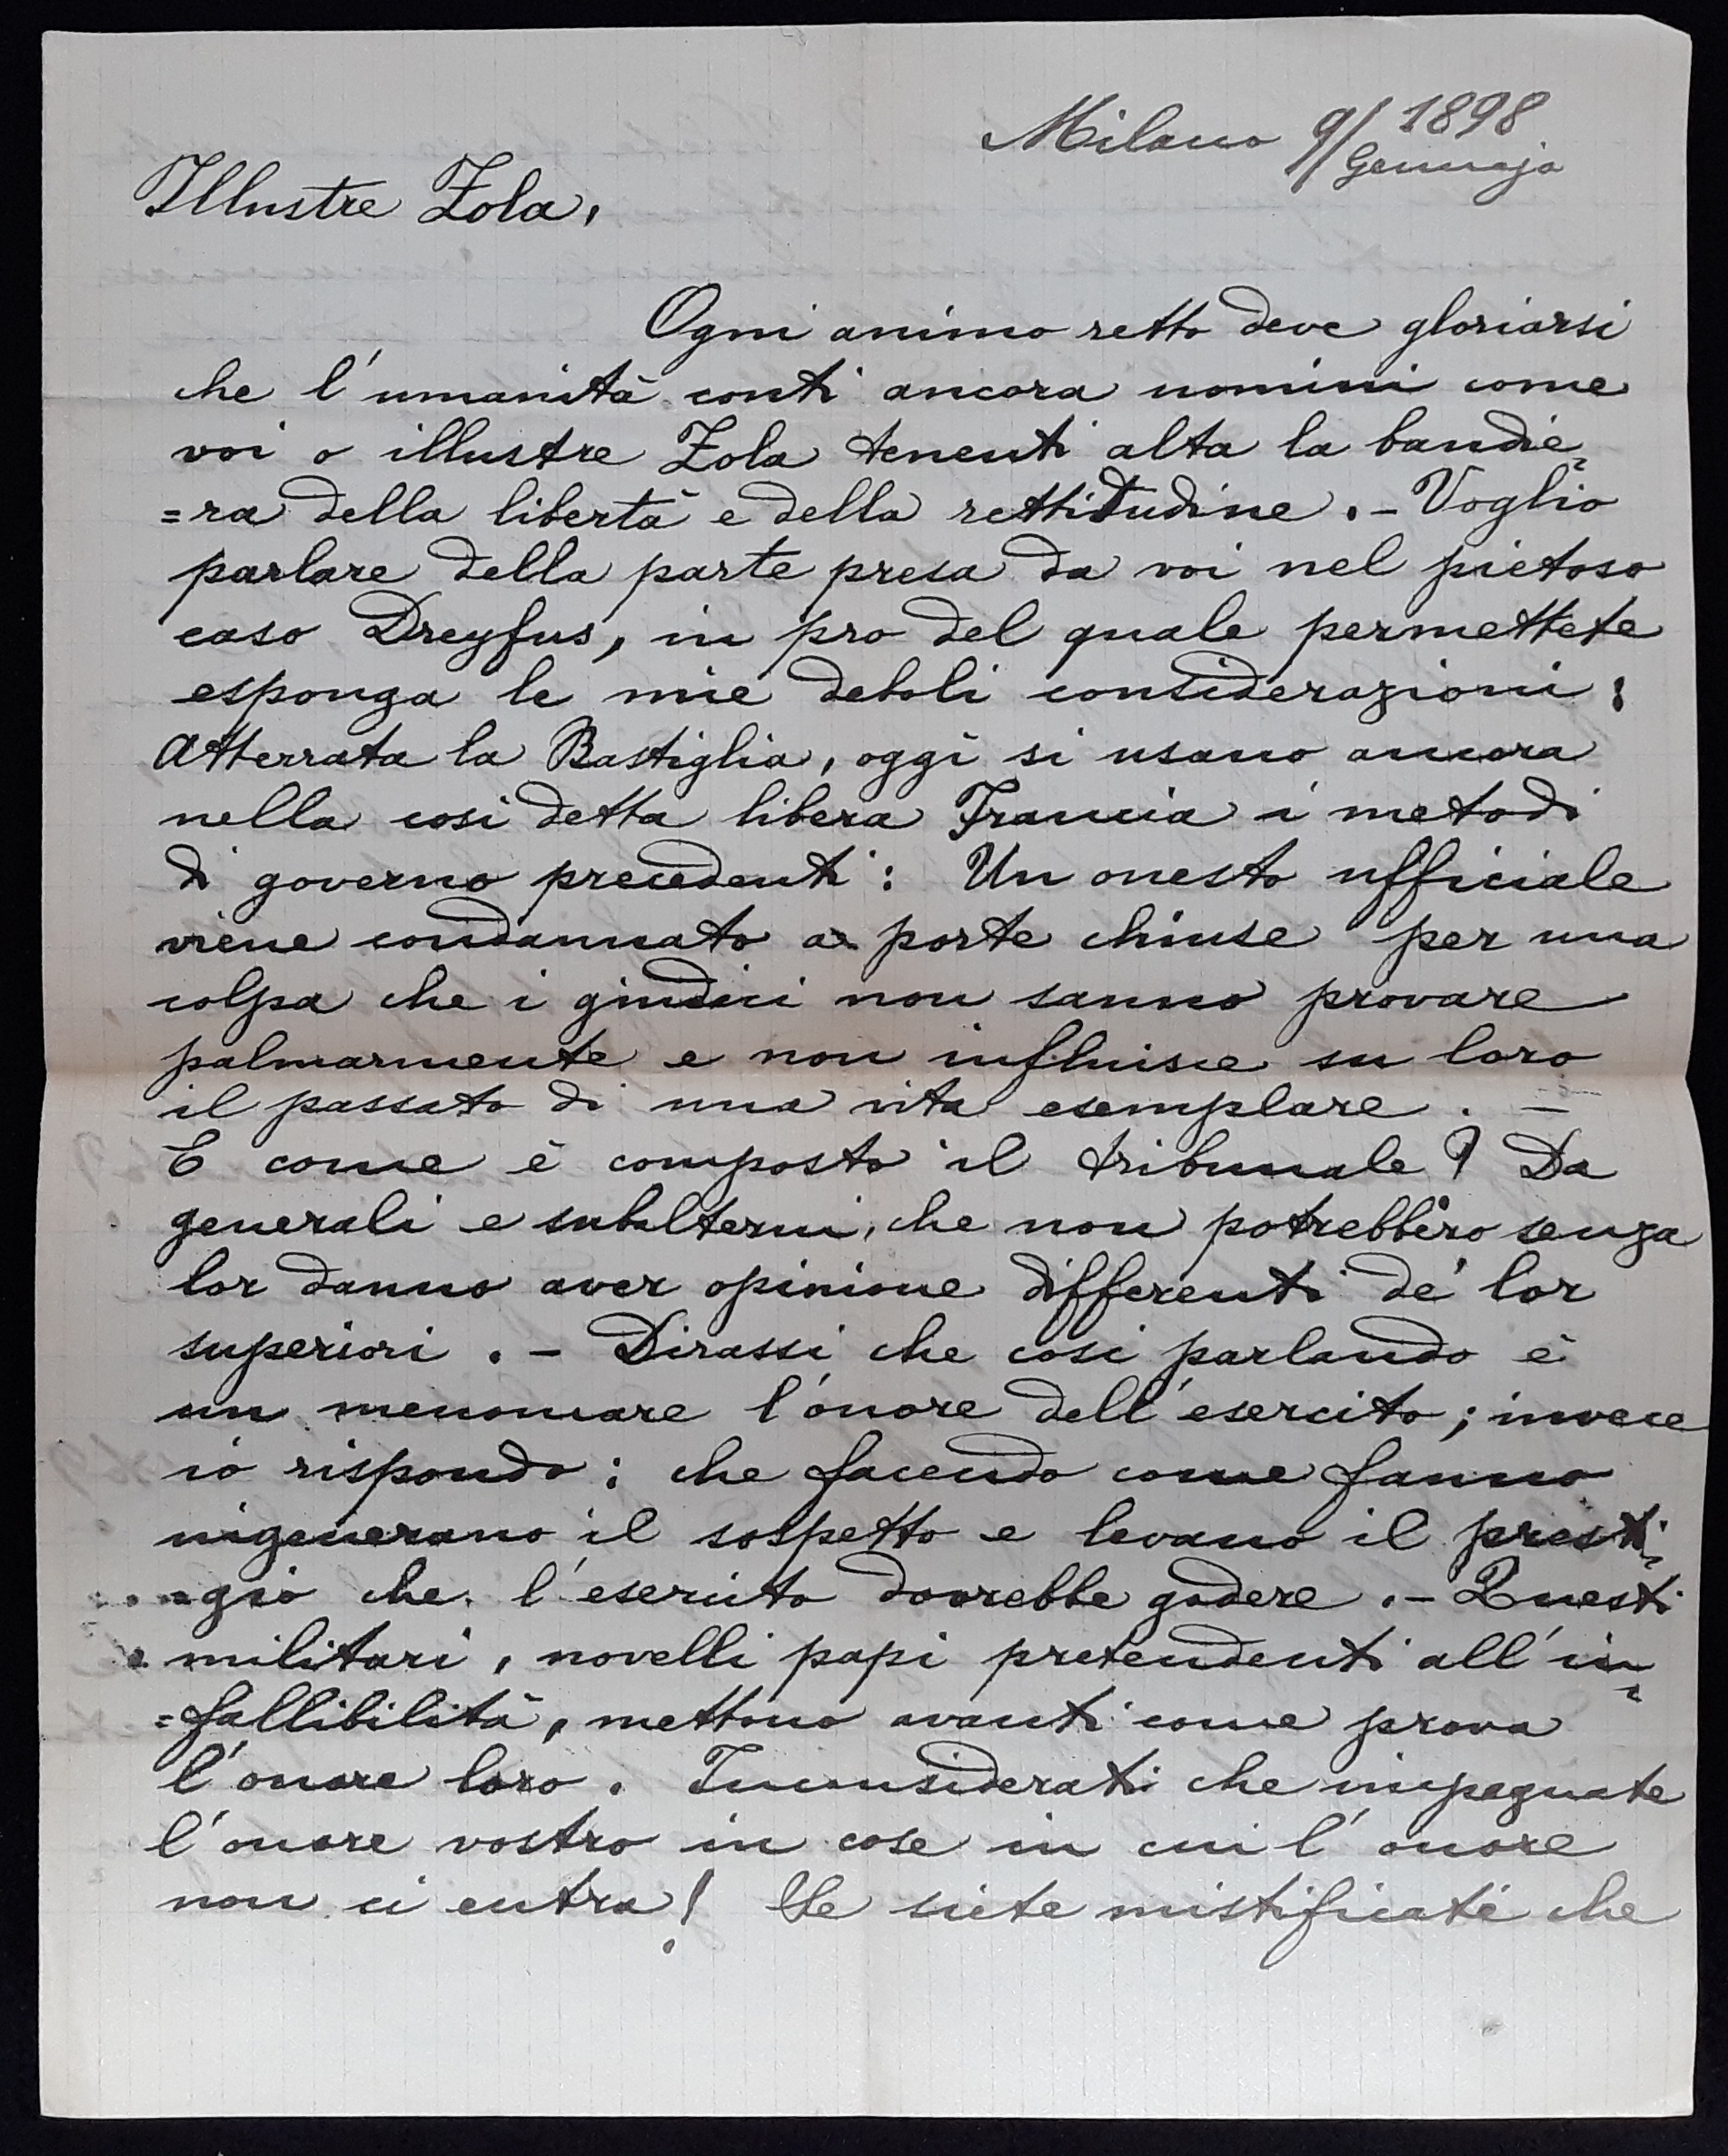 Milano 9/ 1898
Gennajo
Illustre Zola,
Ogni animo retto deve gloriarsi
che l'umanità conti ancora uomini come
voi o illustre Zola tenenti alta la bandie=
=ra della libertà e della rettitudine . - Voglio
parlare della parte presa da voi nel pietoso
caso Dreyfus, in pro del quale permettete
esponga le mie deboli considerazioni :
Atterrata la Bastiglia, oggi si usano ancora
nella così detta libera Francia i metodi
di governo precedenti : Un onesto ufficiale
viene condannato a porte chiuse per una
colpa che i giudici non sanno provare
palmarmente e non influisce su loro
il passato di una vita esemplare . -
E come è composto il tribunale ? Da
generali e subalterni, che non potrebbero senza
lor danno aver opinione differenti de' lor
superiori . - Dirassi che così parlando è
un menomare l'onore dell'esercito ; invece
io rispondo : che facendo come fanno
ingenerano il sospetto e levano il presti=
=gio che l'esercito dovrebbe godere . - Questi
militari, novelli papi pretendenti all'in=
=fallibilità, mettono avanti come prova
l'onore loro . Inconsiderati che impegnate
l'onore vostro in cose in cui l'onore
non ci entra ! Se siete mistificati che